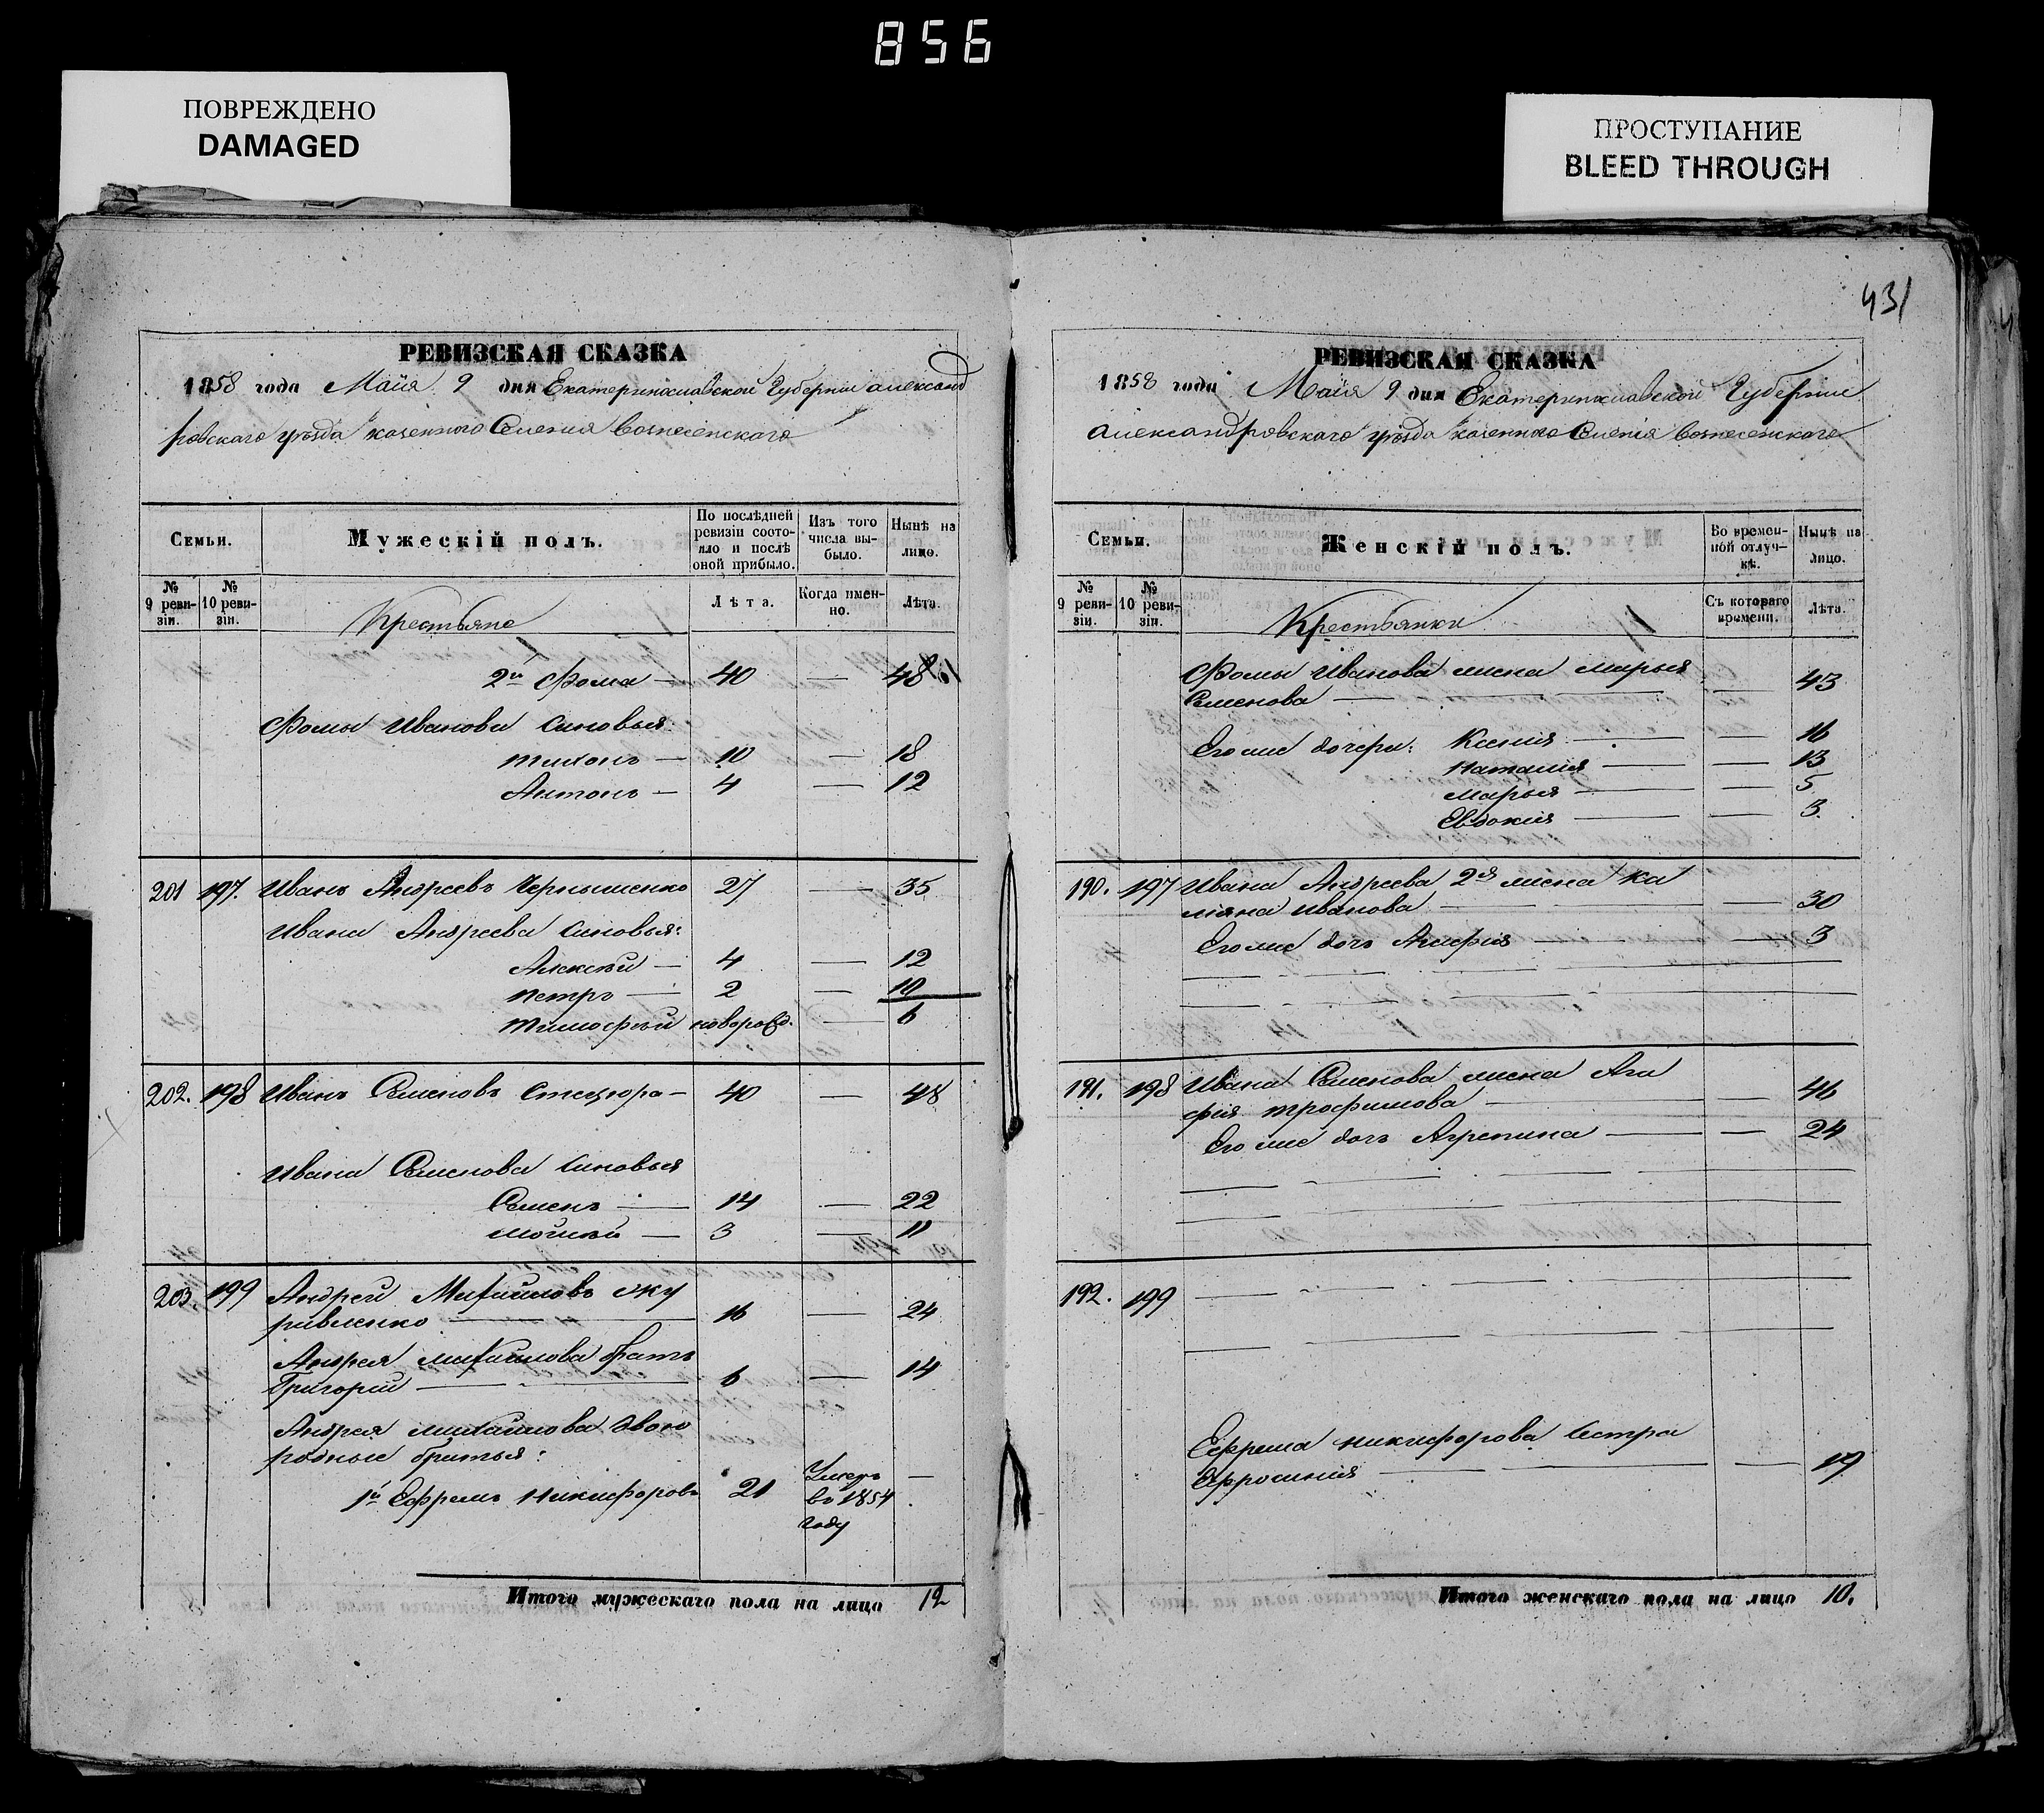 856
ПОВРЕЖДЕНО
DAMAGED
ПРОСТУПАНИЕ
BLEED THROUGH
РЕВИЗСКАЯ СКАЗКА
1858 года Майя 9 дня Екатеринославской Губернии александ
ровскаго уѣзда казеннаго Селения Вознесенскаго
Семьи.
Мужескій полъ.
По послѣдней ревизіи состояло и послѣ оной прибыло.
Изъ того числа выбыло.
Нынѣ на лицо.
№ 9 ревизіи.
№ 10 ревизіи.
Крестьяне
Лѣта.
Когда именно.
Лѣта.
2й Фома — 40 — 48
Фомы Иванова Сыновья:
тихонъ — 10 — 18
Антонъ — 4 — 12
201 197. Иванъ Андреевъ Чернышенко 27 — 35
Ивана Андреева Сыновья:
Алексѣй — 4 — 12
петръ — 2 — 10
тимофѣй новорожд. — 6
202. 198 Иванъ Семеновъ Стецюра — 40 — 48
Ивана Семенова Сыновья
Семенъ — 14 — 22
Мойсѣй — 3 — 11
203. 199 Андрей Михайловъ жу
равленко — 16 — 24
Андрея михайлова братъ
Григорій — 6 — 14
Андрея михайлова двою
родные братья:
1й Ефремъ Никифоровъ 21 Умеръ —
въ 1854
году
Итого мужескаго пола на лицо 12
431
РЕВИЗСКАЯ СКАЗКА
1858 года Майя 9 дня Екатеринославской Губернии
александровскаго уѣзда казеннаго Селенія Вознесенскаго
Семьи.
Женскій полъ.
Во временной отлучкѣ.
Нынѣ на лицо.
№ 9 ревизіи.
№ 10 ревизіи.
Крестьянки
Съ котораго времени.
Лѣта.
Фомы Иванова жена марья
Семенова — — 43
Его же дочери: Ксения — — 16
Наталія — — 13
марья — — 5
Евдокия — — 3
190. 197 Ивана Андреева 2я жена
Иванова — — 30
Его же дочь — — 3
191. 198 Ивана Семенова жена Ага
фия трофимова — — 46
Его же дочь Агрепина — — 24
192. 199
Ефрема никифорова Сестра
Ефросиния — — 19
Итого женскаго пола на лицо 10.